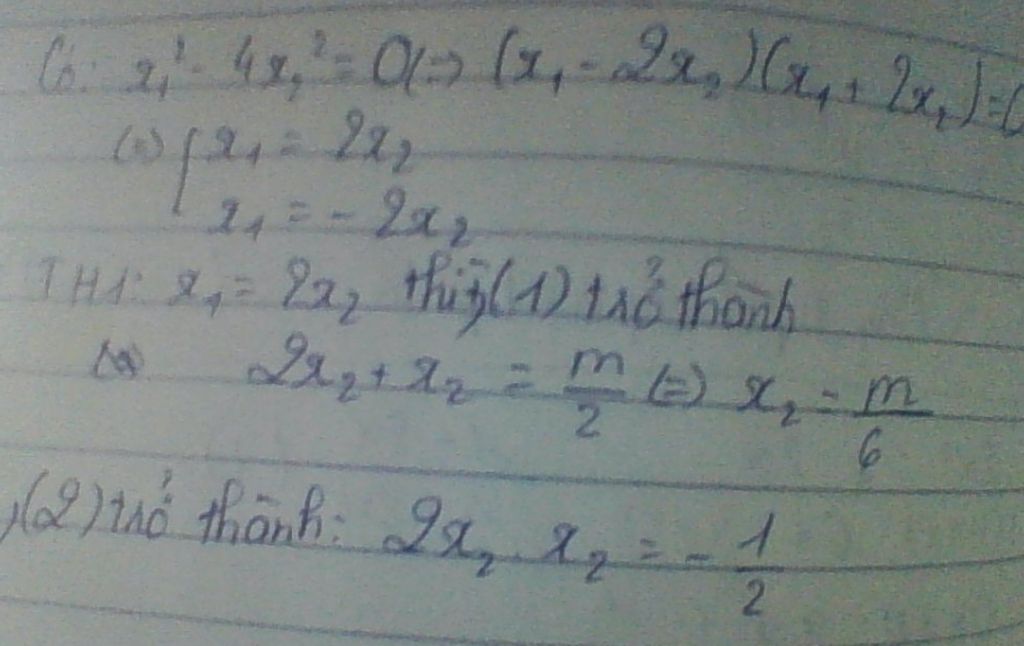 Có: x₁² - 4x₂² = 0 (=) (x₁ - 2x₂)(x₁ + 2x₂) = 0
(=) [ x₁ = 2x₂
x₁ = - 2x₂
TH1: x₁ = 2x₂ thì (1) trở thành
2x₂ + x₂ = m/2 (=) x₂ = m/6
, (2) trở thành: 2x₂ . x₂ = - 1/2